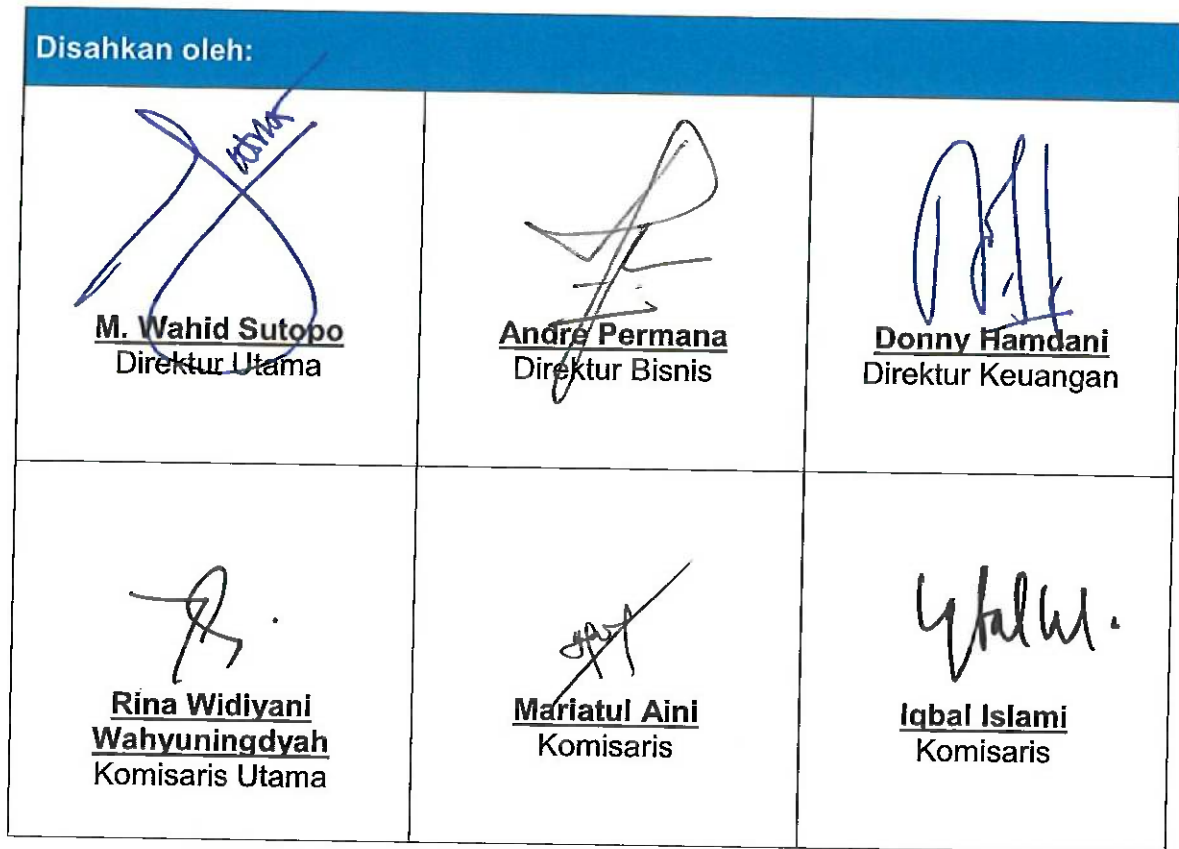 Disahkan oleh:
M. Wahid Sutopo
Direktur Utama
Andre Permana
Direktur Bisnis
Donny Hamdani
Direktur Keuangan
Rina Widiyani
Wahyuningdyah
Komisaris Utama
Mariatul Aini
Komisaris
Iqbal Islami
Komisaris